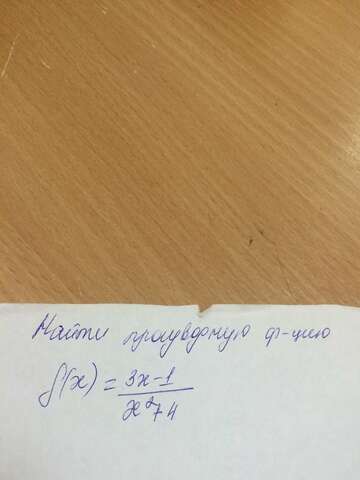 Найти производную ф-цию
f(x) = 3x-1
x²+4